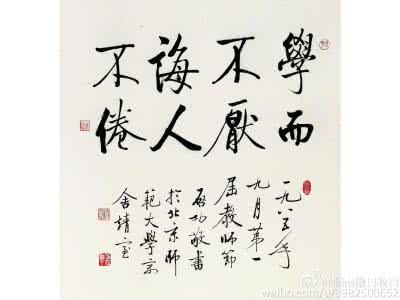 學而
不厭
誨人
不倦
一九八五年
九月第一
屆教師節
啟功敬書
於北京師
範大學
舍
weibo.com/u/5982500652